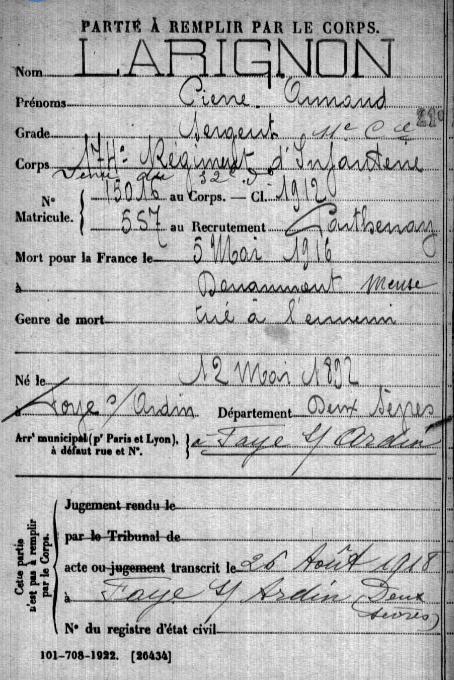 PARTIE À REMPLIR PAR LE CORPS.
LARIGNON
Nom
Prénoms Pierre Armand
Grade Sergent 11e Cie
Corps 174e Régiment d'Infanterie
Venu du 32e
N° Matricule. 15016 au Corps. — Cl. 1912
557 au Recrutement Parthenay
Mort pour la France le 5 Mai 1916
à Douaumont Meuse
Genre de mort tué à l'ennemi
Né le 12 Mai 1892
à Foye s/ Ardin Département Deux Sèvres
Arrt municipal (pr Paris et Lyon), à défaut rue et N°. à Faye s/ Ardin
Cette partie n'est pas à remplir par le Corps.
Jugement rendu le
par le Tribunal de
acte ou jugement transcrit le 26 Août 1918
à Faye s/ Ardin (Deux Sèvres)
N° du registre d'état civil
101-708-1922. [26434]